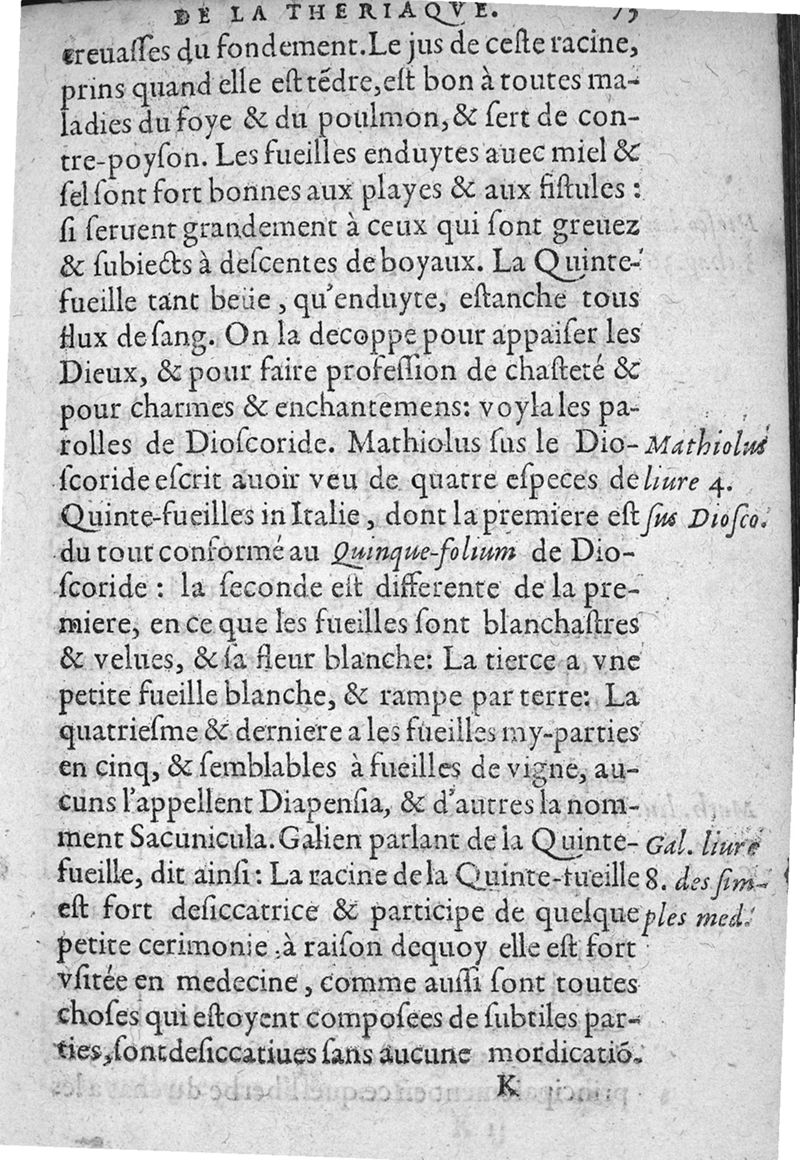 DE LA THERIAQVE. 75
creuaſſes du fondement. Le jus de ceſte racine,
prins quand elle eſt tẽdre, eſt bon à toutes ma-
ladies du foye & du poulmon, & ſert de con-
tre-poyſon. Les fueilles enduytes auec miel &
ſel ſont fort bonnes aux playes & aux fiſtules :
ſi ſeruent grandement à ceux qui ſont greuez
& ſubiects à deſcentes de boyaux. La Quinte-
fueille tant beüe, qu'enduyte, eſtanche tous
flux de ſang. On la decoppe pour appaiſer les
Dieux, & pour faire profeſſion de chaſteté &
pour charmes & enchantemens: voyla les pa-
rolles de Dioſcoride. Mathiolus ſus le Dio-
ſcoride eſcrit auoir veu de quatre eſpeces de
Quinte-fueilles in Italie, dont la premiere eſt
du tout conformé au Quinque-folium de Dio-
ſcoride : la ſeconde eſt differente de la pre-
miere, en ce que les fueilles ſont blanchaſtres
& velues, & ſa fleur blanche: La tierce a vne
petite fueille blanche, & rampe par terre: La
quatrieſme & derniere a les fueilles my-parties
en cinq, & ſemblables à fueilles de vigne, au-
cuns l'appellent Diapenſia, & d'autres la nom-
ment Sacunicula. Galien parlant de la Quinte-
fueille, dit ainſi : La racine de la Quinte-fueille
eſt fort deſiccatrice & participe de quelque
petite cerimonie, à raiſon dequoy elle eſt fort
vſitée en medecine, comme auſſi ſont toutes
choſes qui eſtoyent compoſees de ſubtiles par-
ties, ſont deſiccatiues ſans aucune mordicatiõ.
K
Mathiolus
liure 4.
ſus Dioſco.
Gal. liure
8. des ſim-
ples med.